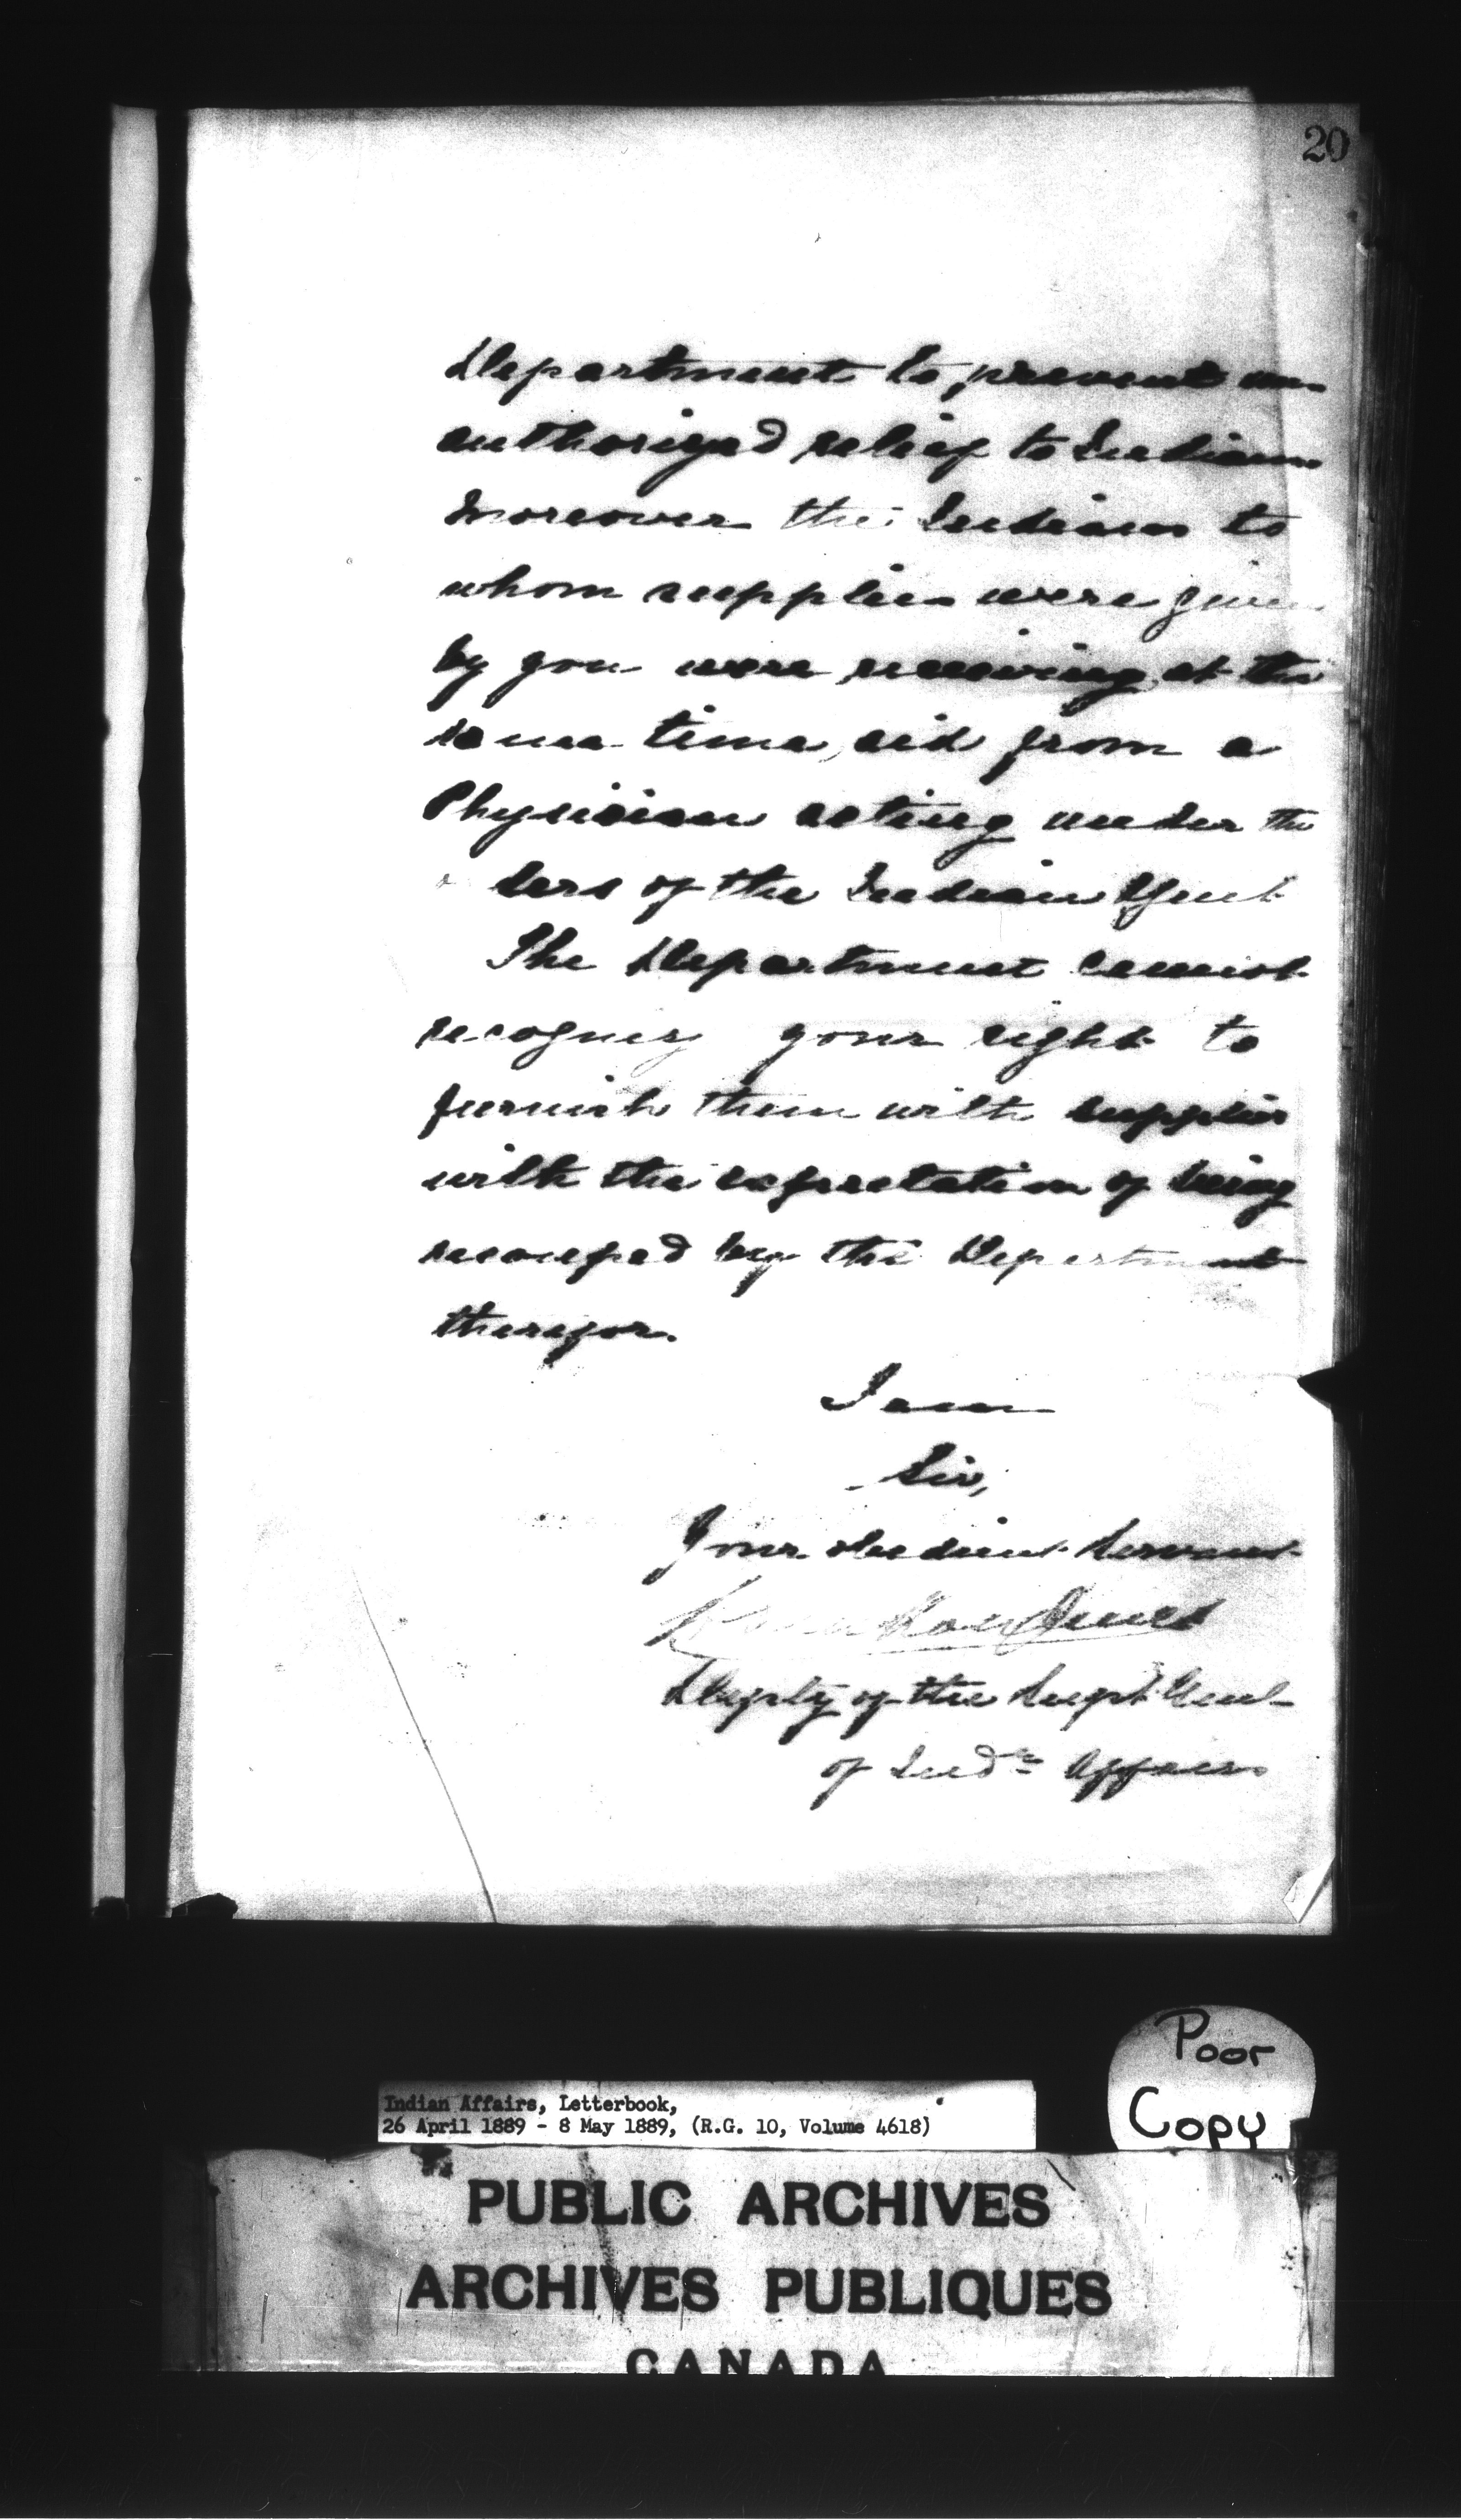 20
Department to prevent un-
authorized relief to Indians
Moreover the Indians to
whom supplies were given
by you were receiving at the
same time, aid from a
Physician acting under the
ders of the Indian Agent
The Department cannot
recognize your right to
furnish them with supplies
with the expectation of being
recouped by the Department
therefor.
I am
Sir,
Your obedient Servant
Deputy of the Supt Genl
of Indn Affairs
Poor
Copy
Indian Affairs, Letterbook,
26 April 1889 - 8 May 1889, (R.G. 10, Volume 4618)
PUBLIC ARCHIVES
ARCHIVES PUBLIQUES
CANADA